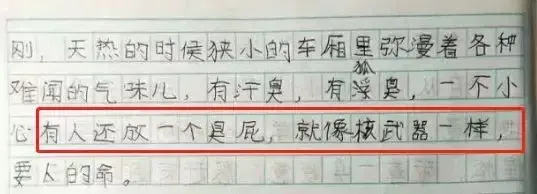 刚，天热的时候狭小的车厢里弥漫着各种
难闻的气味儿，有汗臭，有狐臭，一不小
心有人还放一个臭屁，就像核武器一样，
要人的命。